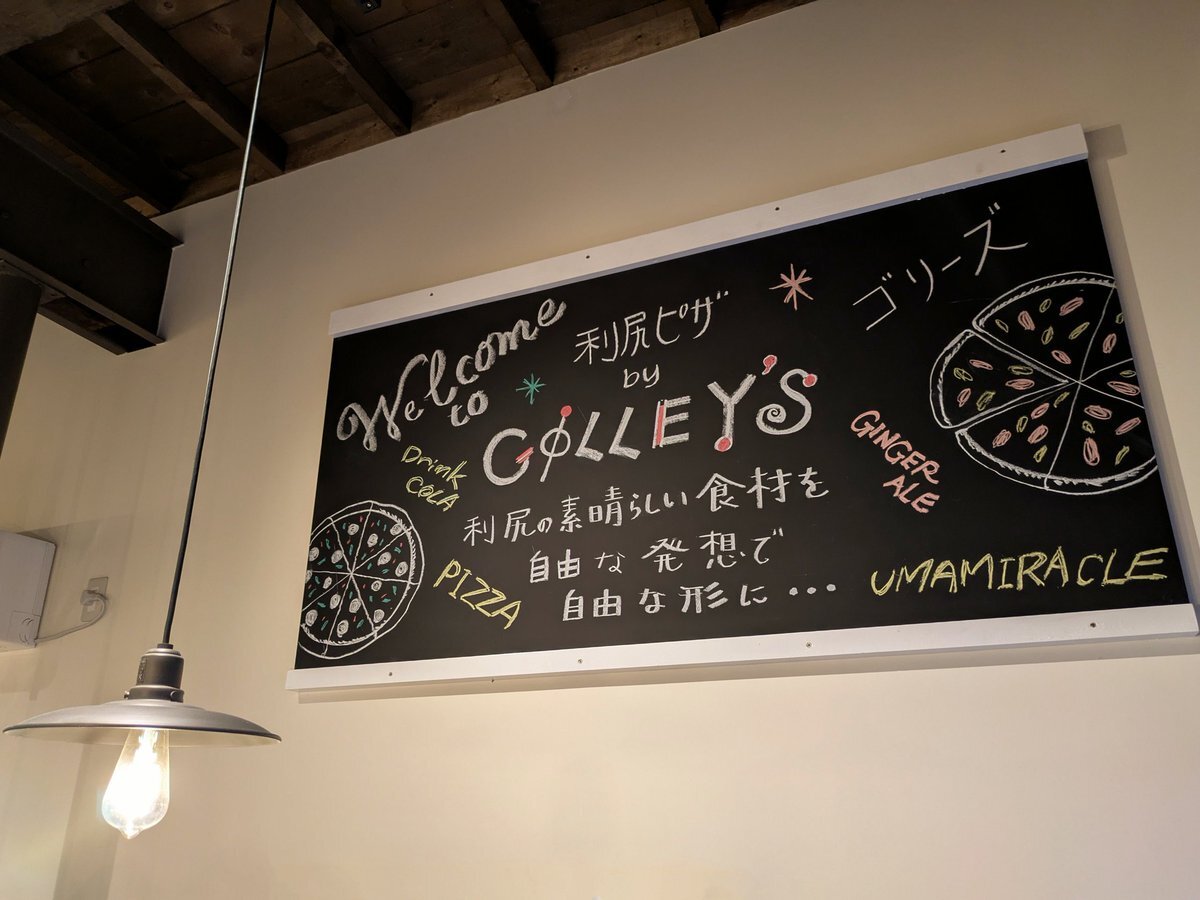 Welcome
to
利尻ピザ
by
GOLLEY'S
ゴリーズ
Drink
COLA
GINGER
ALE
利尻の素晴らしい食材を
自由な発想で
自由な形に・・・
PIZZA
UMAMIRACLE